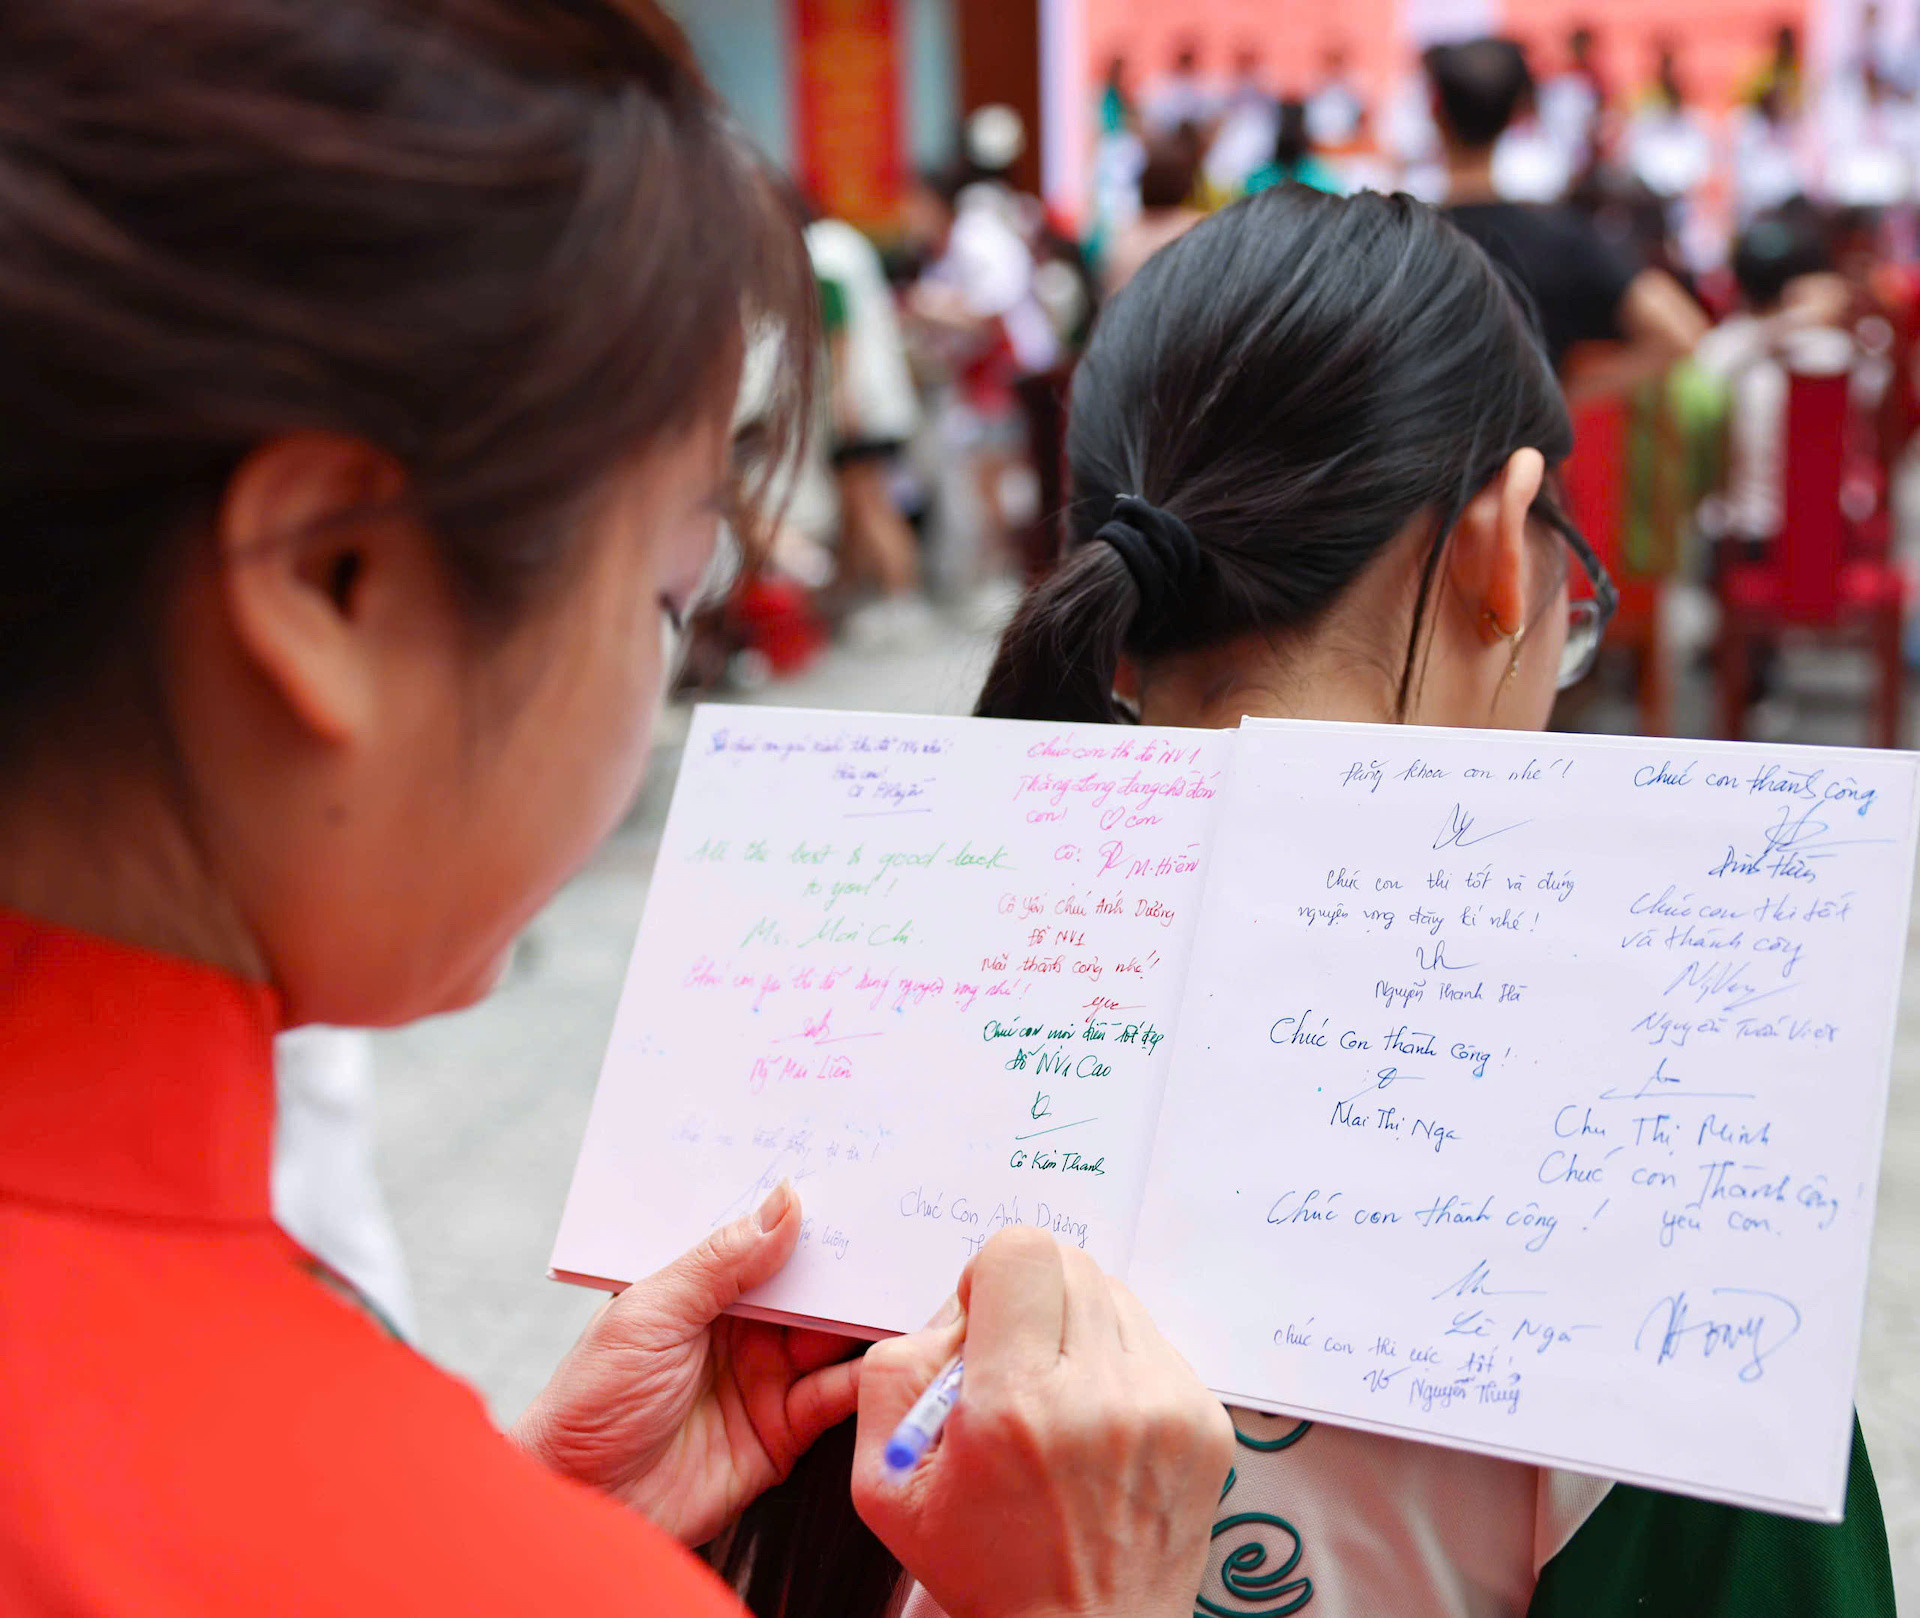 thi đỗ NV1 nhé!
All the best & good luck
to you!
Ms. Mai Chi.
Chúc con gái thi đỗ đúng nguyện vọng nhé!
Mai Liên
Chúc con thi đỗ NV1
Thăng Long đang chờ đón
con! ♡ con
Cô: M. Hiền
Cô Yến Chúc Ánh Dương
Đỗ NV1
Mãi thành công nhé!
Chúc con mọi điều tốt đẹp
Đỗ NV1 Cao
Cô Kim Thanh
Chúc Con Ánh Dương
Th
Đăng khoa con nhé!
Chúc con thi tốt và đúng
nguyện vọng đăng kí nhé!
Nguyễn Thanh Hà
Chúc Con thành công!
Mai Thị Nga
Chúc con thành công!
Lê Nga
Chúc con thi cực tốt!
Nguyễn Thuý
Chúc con thành công
Chúc con thi tốt
và thành công
Nguyễn Tuấn Việt
Chu Thị Minh
Chúc con Thành công!
yêu con.